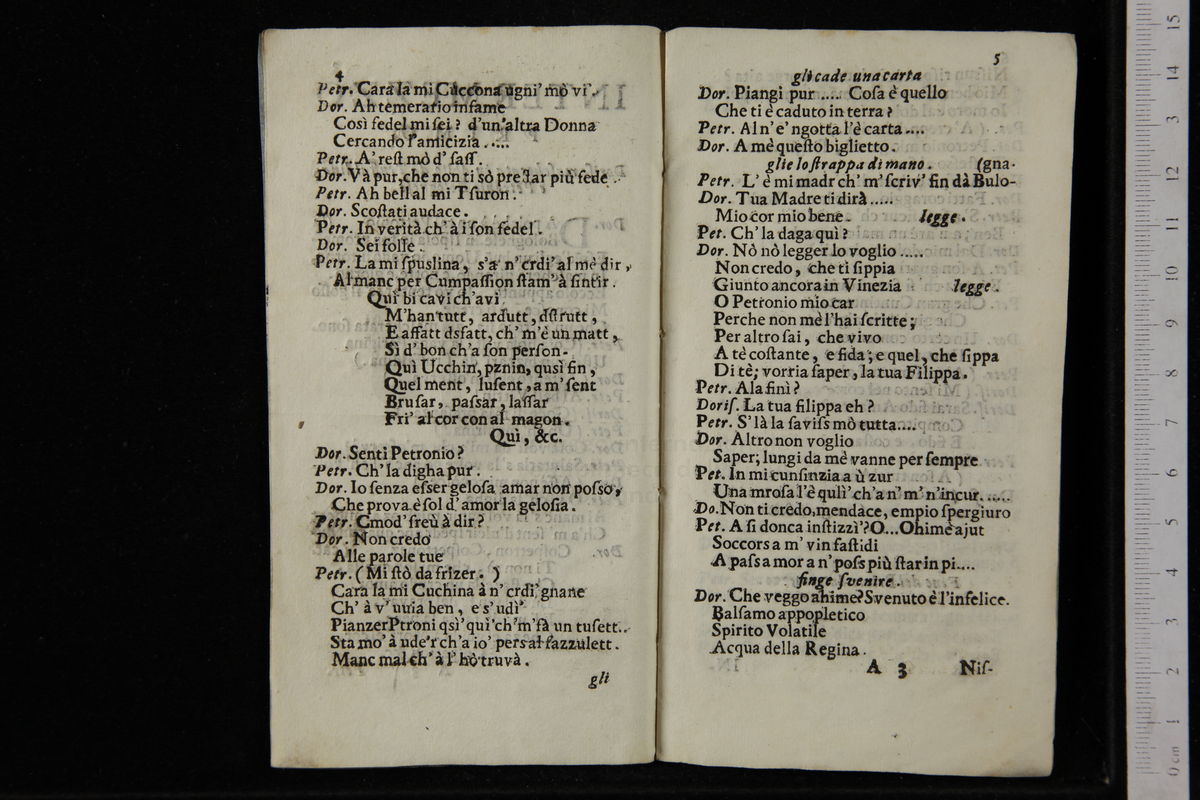 4
Petr. Cara la mi Cuccona ugni' mò vi'.
Dor. Ah temerario infame
Così fedel mi ſei ? d'un'altra Donna
Cercando l'amicizia .....
Petr. A' reſt mò d' ſaſſ.
Dor. Và pur, che non ti sò preſtar più fede .
Petr. Ah bell al mi Tſuron .
Dor. Scoſtati audace .
Petr. In verità ch' à i ſon fedel .
Dor. Sei folle .
Petr. La mi ſpuslina , s'a' n' crdi' al mè dir ,
Almanc per Cumpaſſion ſtam' à ſintir .
Qui bi cavi ch'avi
M'han tutt , ardutt , dſtrutt ,
E affatt dsfatt, ch' m'è un matt ,
Sì d' bon ch'a ſon perſon.
Quì Ucchin, pznin, qusì fin ,
Quel ment, luſent , a m' ſent
Bruſar, paſsar, laſſar
Frì' al cor con al magon.
Qui, &c.
Dor. Senti Petronio ?
Petr. Ch' la digha pur .
Dor. Io ſenza eſser geloſa amar non poſso,
Che prova è ſol d' amor la geloſia .
Petr. Cmod' ſreù à dir ?
Dor. Non credo
Alle parole tue
Petr. ( Mi ſtò da frizer . )
Cara la mi Cuchina à n' crdi' gnane
Ch' à v' uuia ben , e s' udì'
Pianzer Ptroni qsì' quì 'ch'm'fà un tuſett..
Sta mo' à ude'r ch'a io' pers al fazzulett .
Manc mal ch' à l' hò truvà .
gli
5
gli cade una carta
Dor. Piangi pur .... Coſa è quello
Che ti è caduto in terra ?
Petr. Al n' e' ngotta l'è carta ....
Dor. A mè queſto biglietto .
glie lo ſtrappa di mano . (gna.
Petr. L' è mi madr ch' m' ſcriv' fin dà Bulo-
Dor. Tua Madre ti dirà .....
Mio cor mio bene . legge .
Pet. Ch' la daga quì ?
Dor. Nò nò legger lo voglio .....
Non credo , che ti ſippia
Giunto ancora in Vinezia legge .
O Petronio mio car
Perche non mè l'hai ſcritte ;
Per altro ſai , che vivo
A tè coſtante , e fida ; e quel, che ſippa
Di tè; vorria ſaper, la tua Filippa.
Petr. Ala finì ?
Doriſ. La tua filippa eh ?
Petr. S' là la ſaviſs mò tutta....
Dor. Altro non voglio
Saper; lungi da mè vanne per ſempre
Pet. In mi cunſinzia a ù zur
Una mroſa l'è quli' ch'a n' m' n'incur. .....
Do. Non ti credo, mendace, empio ſpergiuro
Pet. A ſi donca inſtizzì'? O... Ohimè ajut
Soccors a m' vin faſtidi
A paſs a mor a n' poſs più ſtar in pi....
finge ſvenire .
Dor. Che veggo ahime? Svenuto è l'infelice.
Balſamo appopletico
Spirito Volatile
Acqua della Regina .
A 3 Niſ-